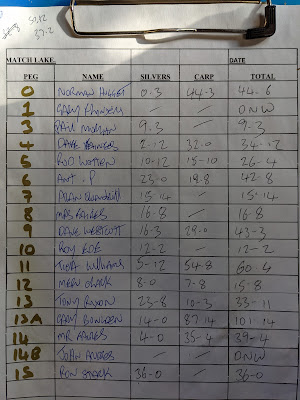 50.12
39-2
MATCH LAKE. DATE
PEG NAME SILVERS CARP TOTAL
0 NORMAN 0.3 44-3 44-6
1 GARY / / DNW
3 PAUL 9-3 / 9-3
4 DAVE 2-12 32-0 34-12
5 ROD WOTTEN 10-12 15-10 26-4
6 ANT. P 23-0 19.8 42-8
7 ALAN 15-14 / 15-14
8 MRS 16-8 / 16-8
9 DAVE WESTCOTT 16-3 43-3
10 ROY 12-2 / 12-2
11 WILLIAMS 5-12 54-8 60-4
12 CLARK 8-0 7-8 15-8
13 TONY 23-8 10-3 33-11
13A GARY BOWDEN 14-0 87-14 101-14
14 MR 4-0 35-4 39-4
14B JOHN / / DNW
15 RON STARK 36-0 / 36-0